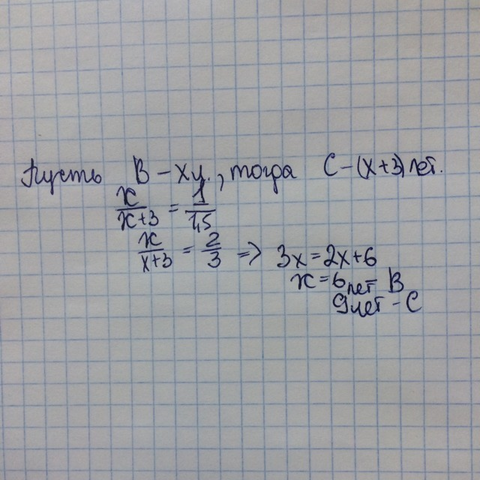 Пусть В – х у., тогда С – (х+3) лет.
х/(х+3) = 1/1,5
х/(х+3) = 2/3 => 3х = 2х+6
х = 6 лет В
9 лет – С